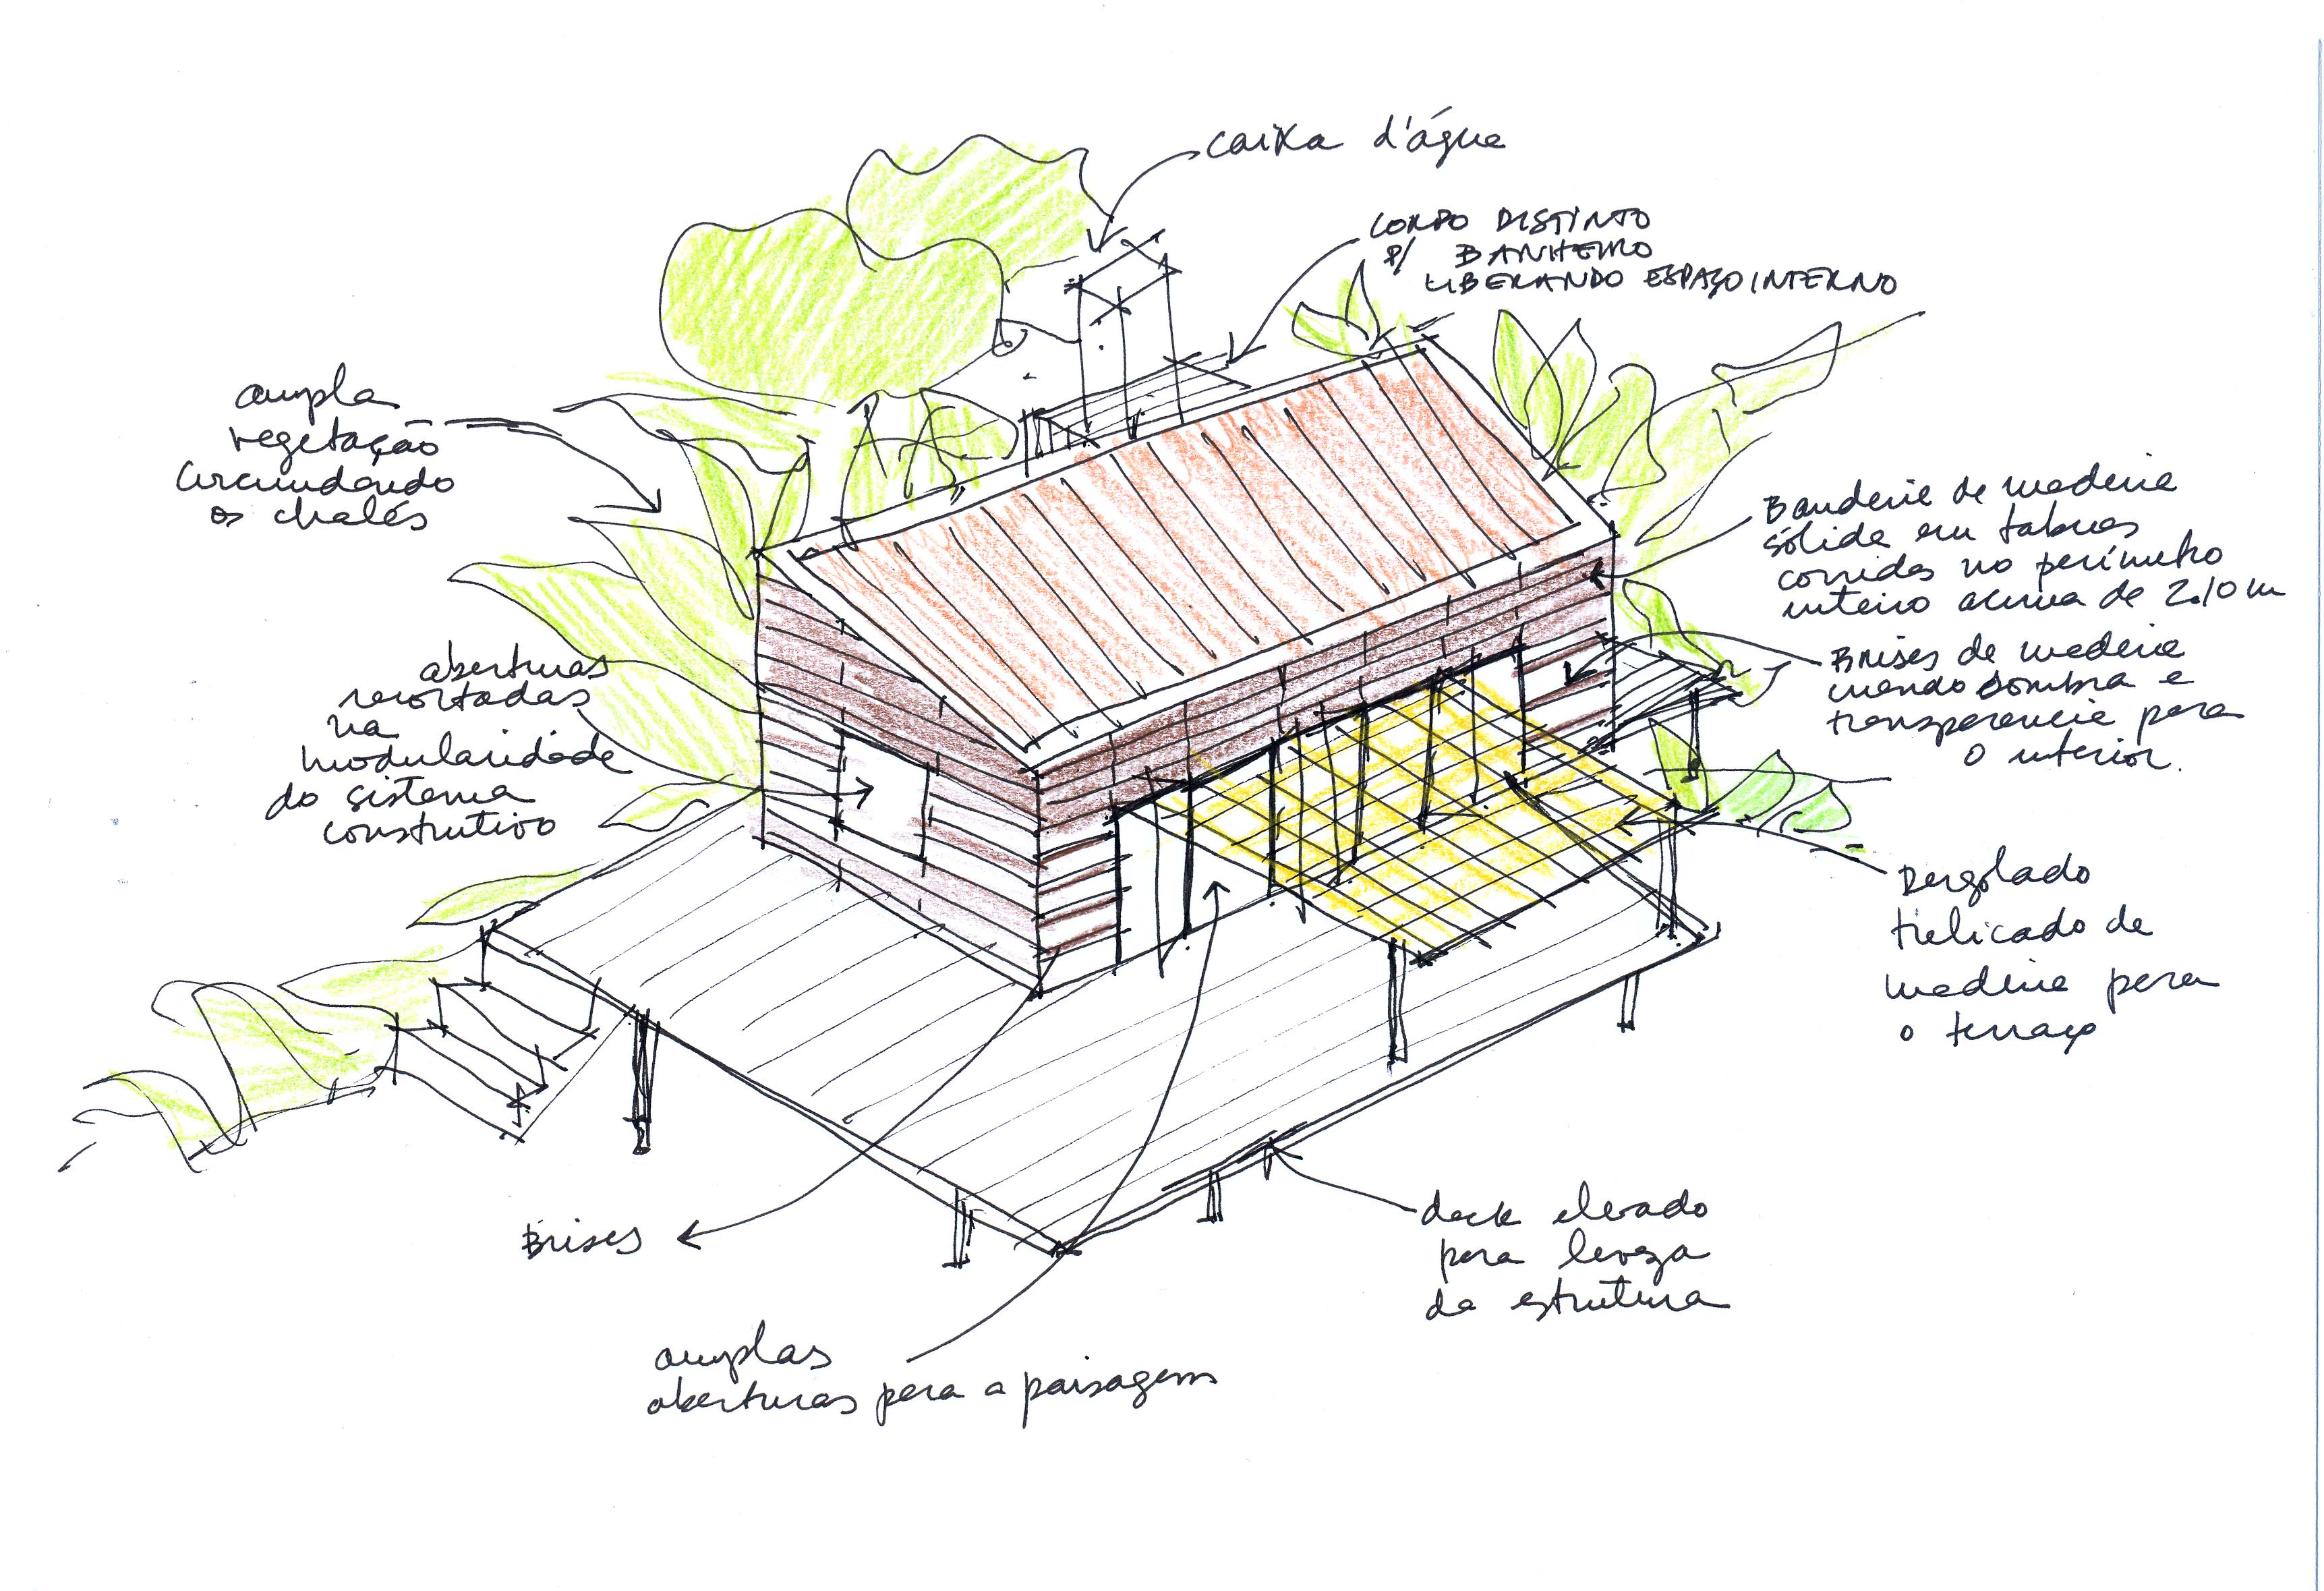 caixa d'água
CORPO DISTINTO
P/ BANHEIRO
LIBERANDO ESPAÇO INTERNO
ampla
vegetação
circundando
os chalés
Bandeira de madeira
sólida em tábuas
corridas no perímetro
inteiro acima de 2.10 m
abertuas
recortadas
na
modularidade
do sistema
construtivo
Brises de madeira
criando sombra e
transparencia para
o interior.
Pergolado
treliçado de
madeira para
o terraço
Brises
deck elevado
para leveza
da estrutura
amplas
aberturas para a paisagem